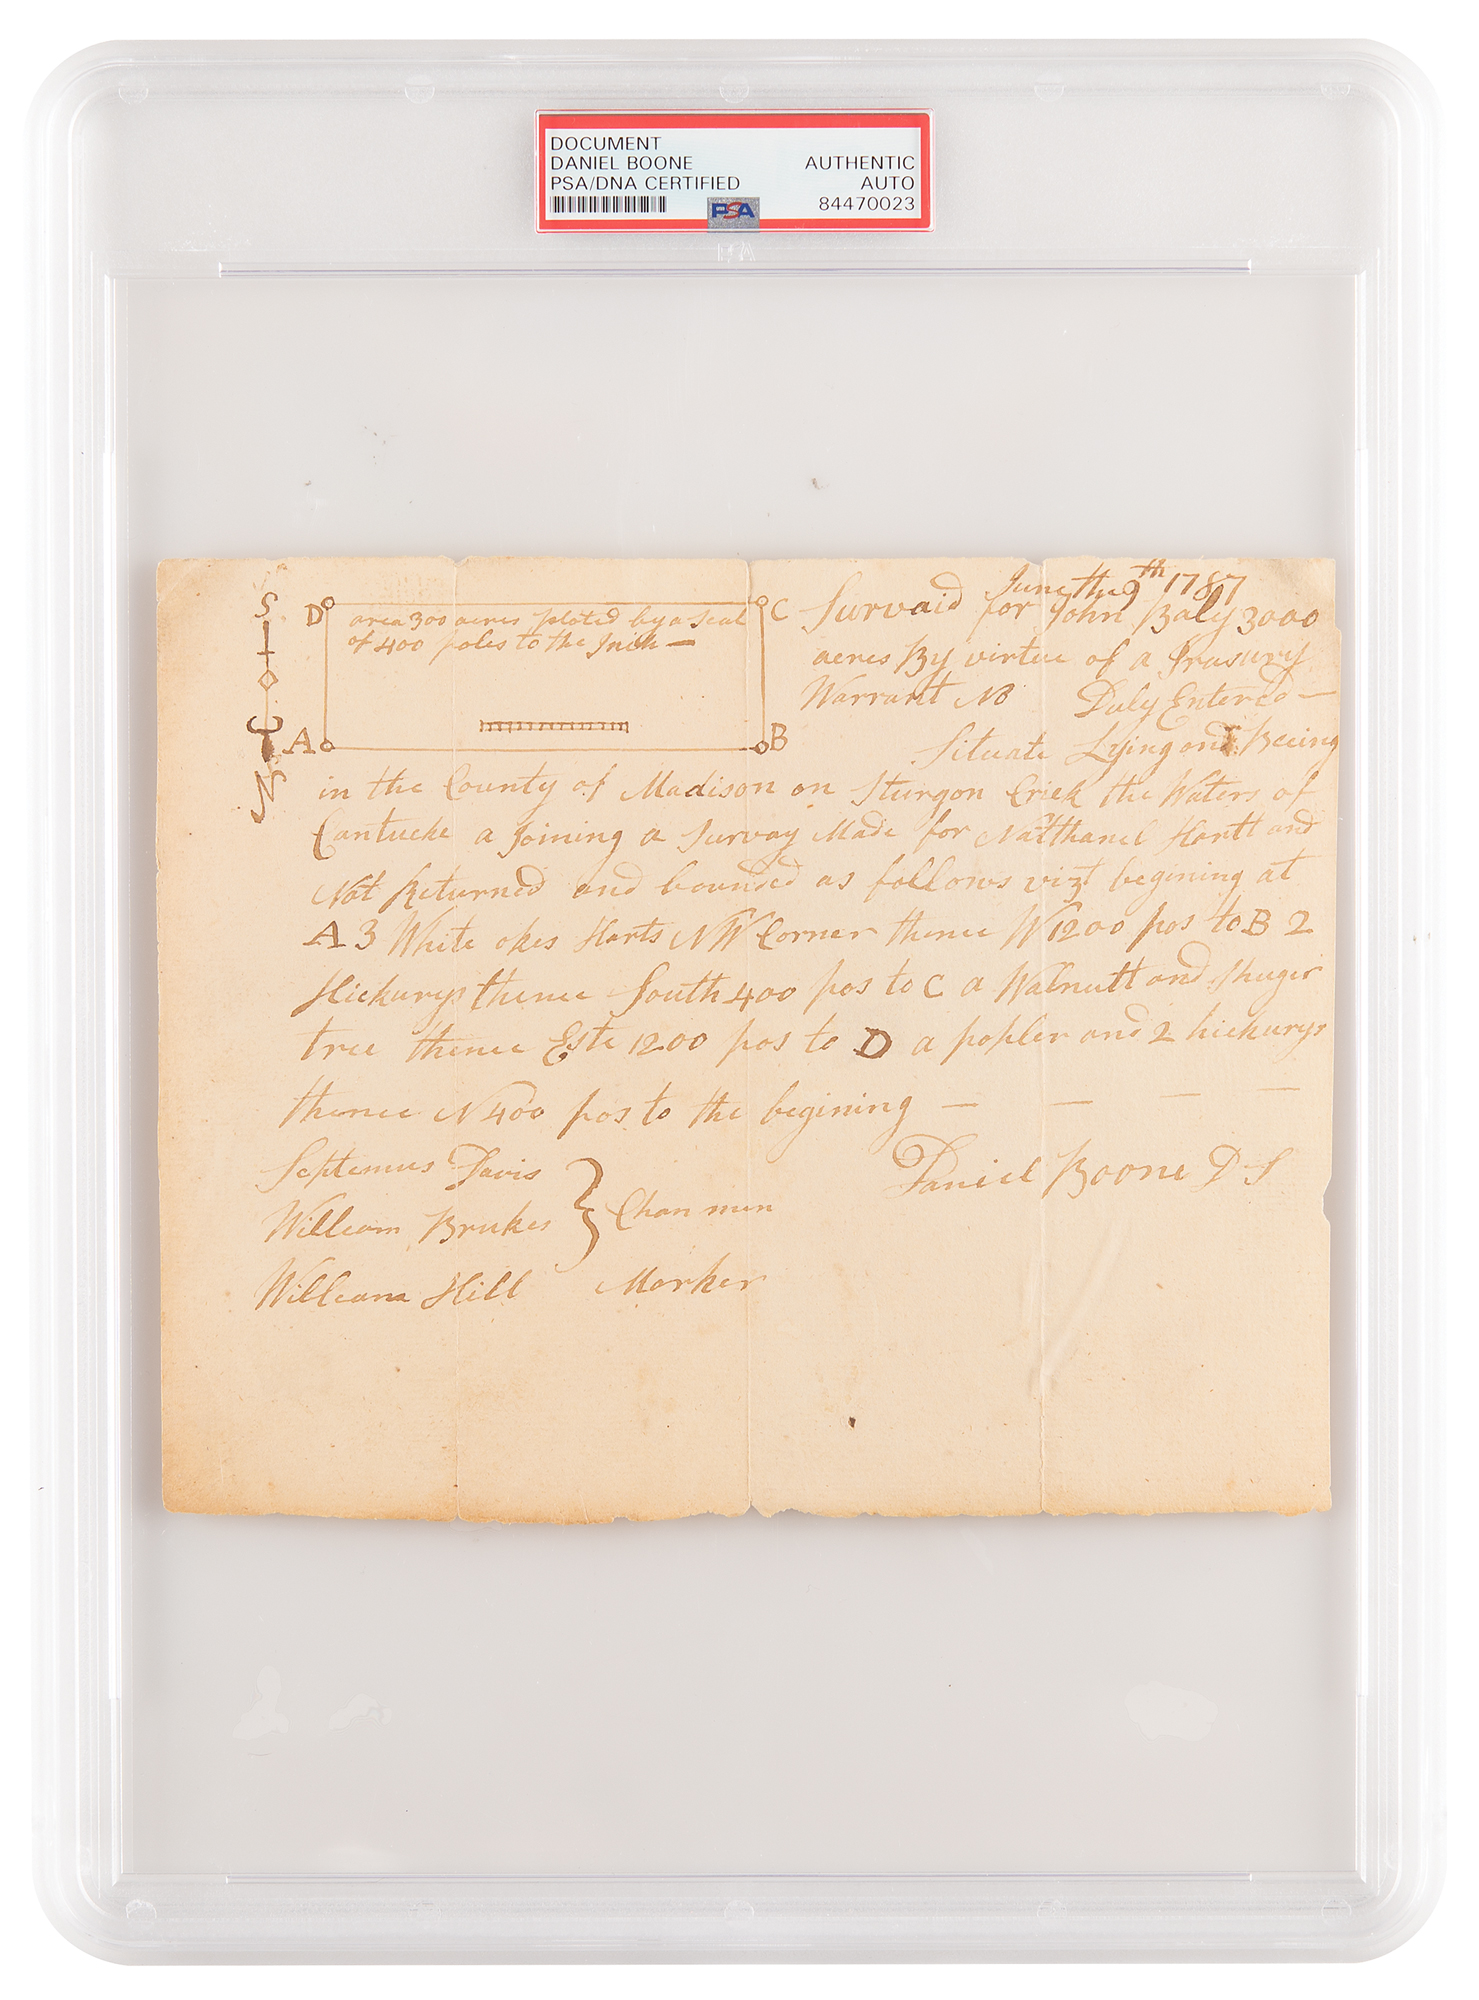 DOCUMENT
DANIEL BOONE AUTHENTIC
PSA/DNA CERTIFIED AUTO
PSA 84470023
June the 9th 1787
S D C
area 300 acres ploted by a Scal
of 400 poles to the Inch —
A B
N
Survaid for John Baly 3000
acres By virtue of a Trasury
Warrant No Duly Entered —
Situate Lying and Beeing
in the County of Madison on Sturgon Criek the Waters of
Cantucke a Joining a Survay Made for Natthanel Hartt and
Not Returned and bounded as follows vizt begining at
A 3 White okes Harts NW Corner thence W 1200 pos to B 2
Hickurys thence South 400 pos to C a Walnutt and Shuger
tree thence Este 1200 pos to D a popler and 2 hickurys
thence N 400 pos to the begining — — — —
Daniel Boone D S
Septemus Davis
William Brukes } Chanmen
William Hill Marker